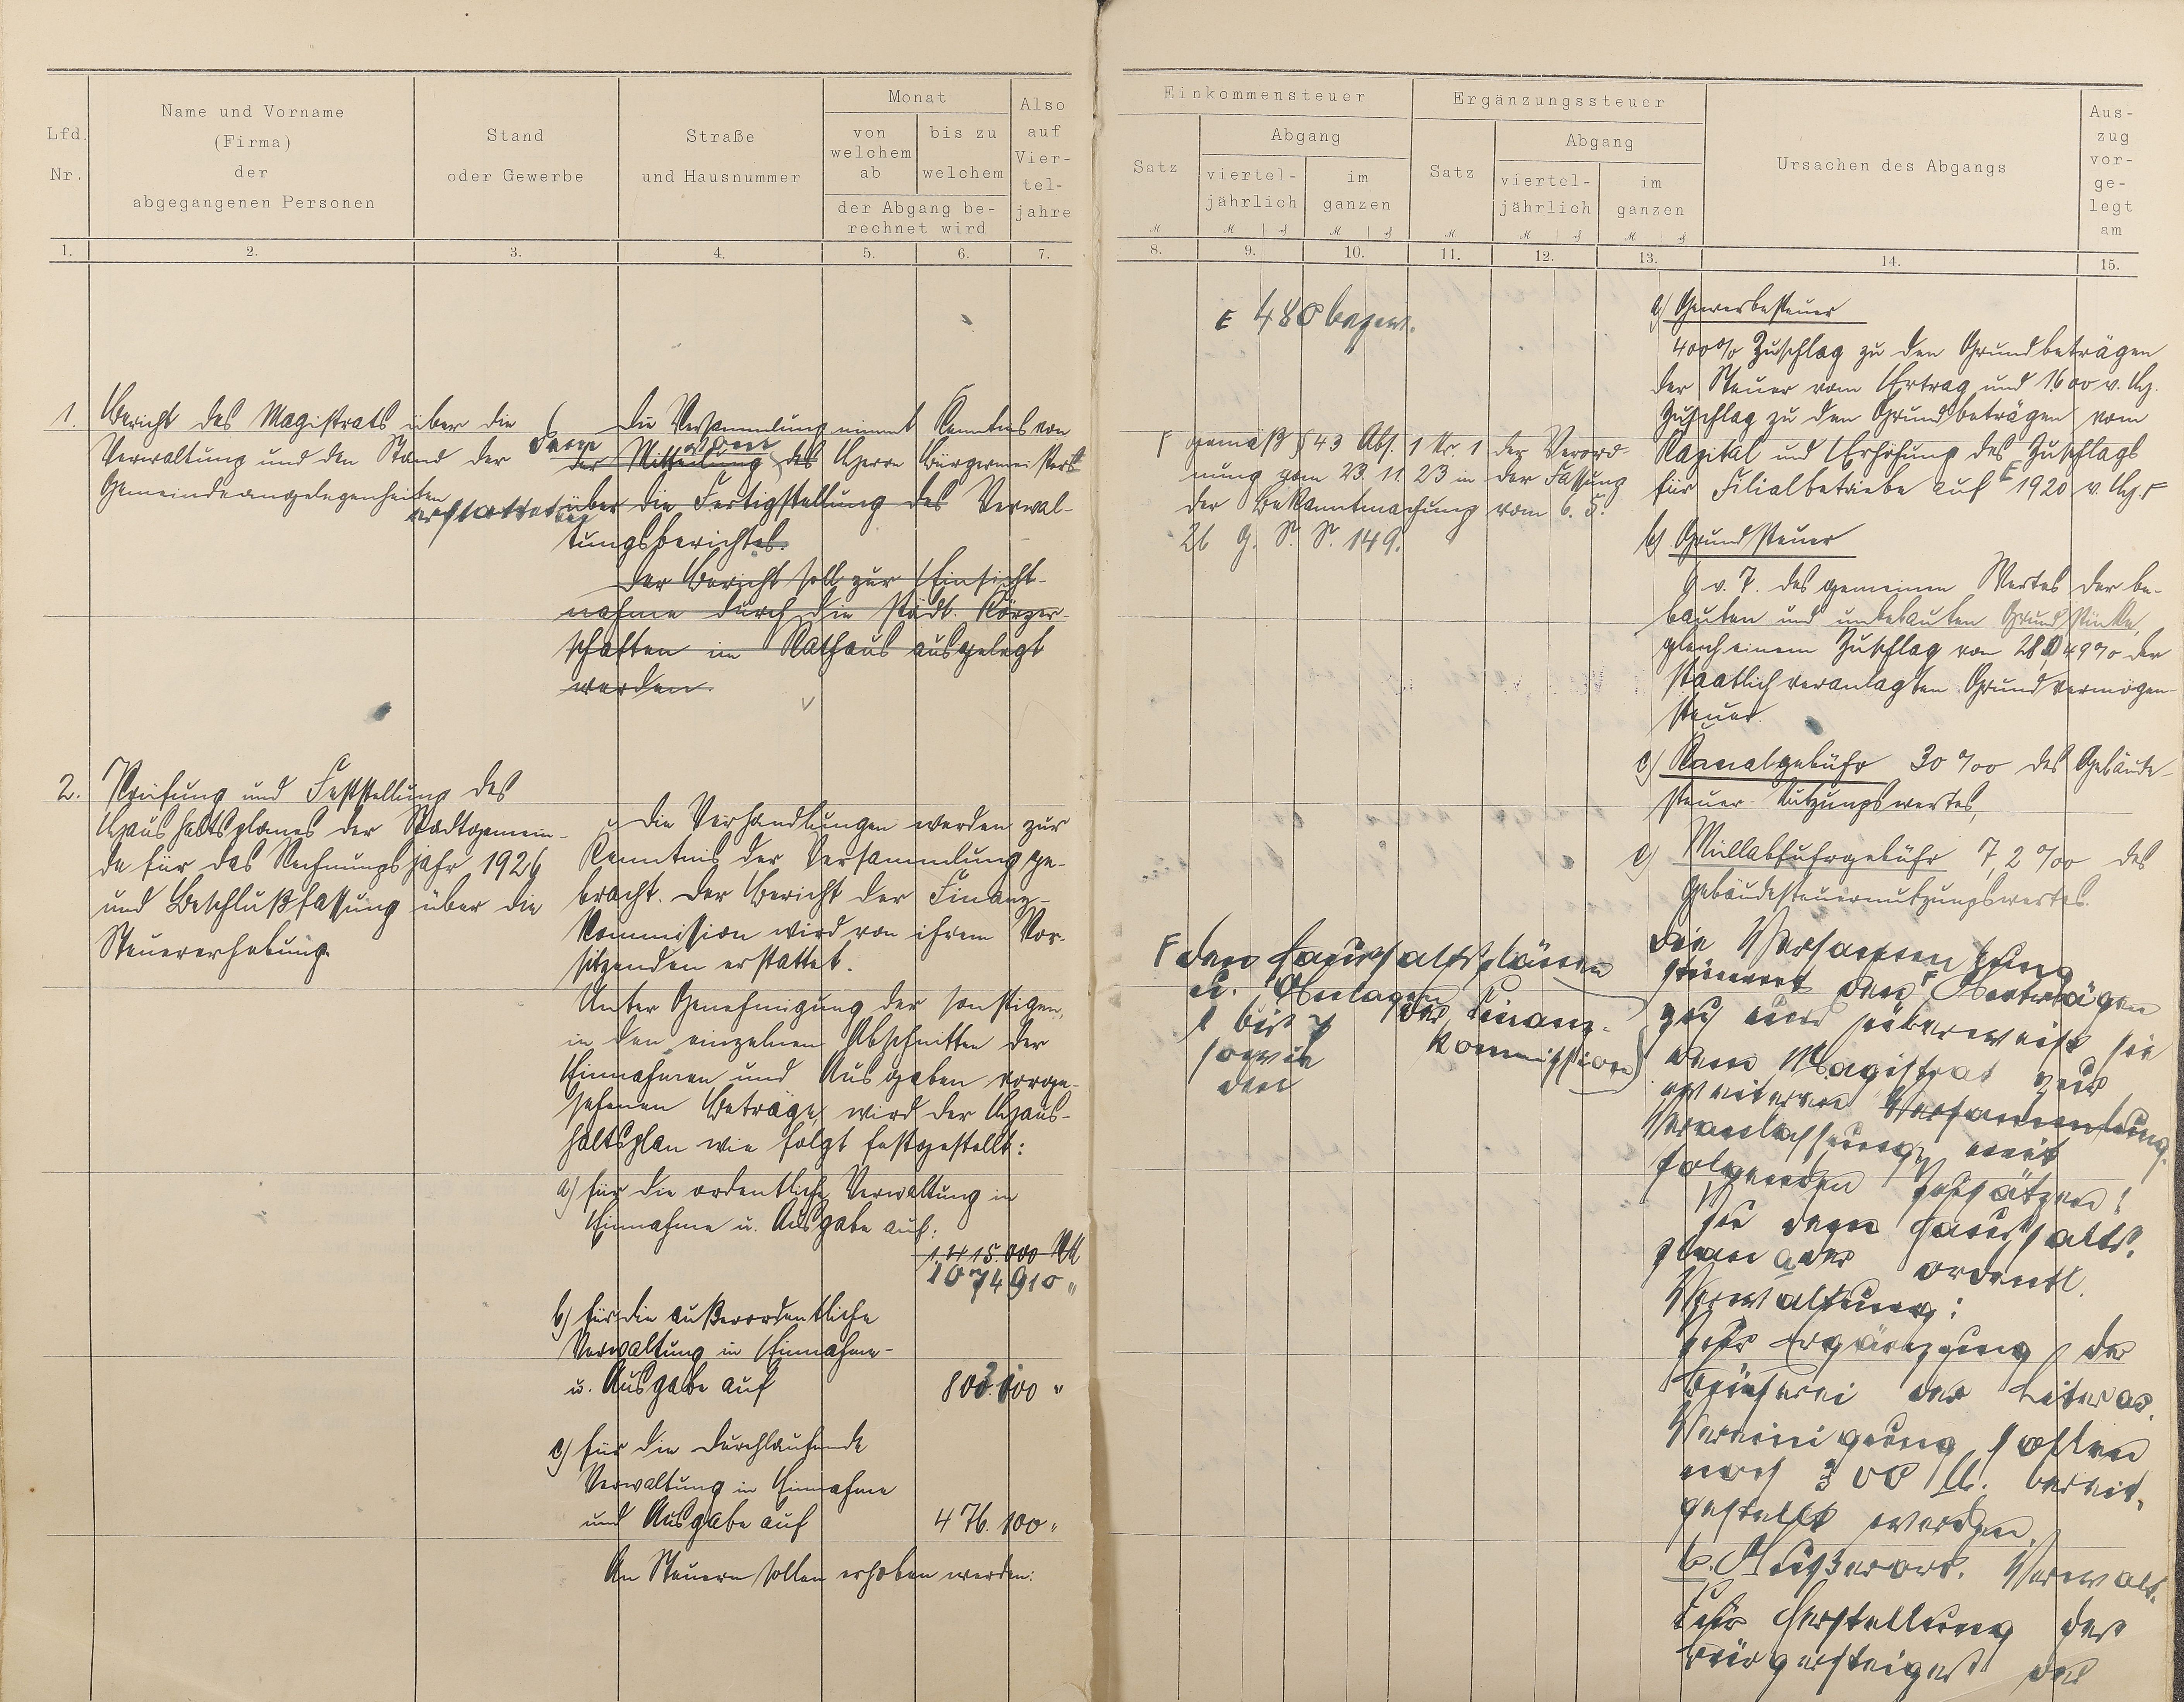 Lfd.
Nr.
Name und Vorname
(Firma)
der
abgegangenen Personen
Stand
oder Gewerbe
Straße
und Hausnummer
Monat
von
welchem
ab
bis zu
welchem
der Abgang be-
rechnet wird
Also
auf
Vier-
tel-
jahre
1.
2.
3.
4.
5.
6.
7.
1.
Bericht des Magistrats über die
Verwaltung und den Stand der
Gemeindeangelegenheiten
Die Versammlung nimmt Kenntnis von
der Mitteilung des Herrn Bürgermeisters
erstatteten
über die Fertigstellung des Verwal-
tungsberichtes.
Der Bericht soll zur Einsicht-
nahme durch die städt. Körper-
schaften im Rathaus ausgelegt
werden.
2.
Prüfung und Feststellung des
Haushaltsplanes der Stadtgemein-
de für das Rechnungsjahr 1926
und Beschlußfassung über die
Steuererhebung.
Die Verhandlungen werden zur
Kenntnis der Versammlung ge-
bracht. Der Bericht der Finanz-
kommission wird von ihrem Vor-
sitzenden erstattet.
Unter Genehmigung der sonstigen,
in den einzelnen Abschnitten der
Einnahmen und Ausgaben vorge-
sehenen Beträge wird der Haus-
haltsplan wie folgt festgestellt:
a) für die ordentliche Verwaltung in
Einnahme u. Ausgabe auf:
1.415.000 M
1074910 "
b) für die außerordentliche
Verwaltung in Einnahme-
u. Ausgabe auf
"
c) für die durchlaufende
Verwaltung in Einnahme
und Ausgabe auf
476.100 "
An Steuern sollen erhoben werden:
Einkommensteuer
Satz
Abgang
viertel-
jährlich
im
ganzen
Ergänzungssteuer
Satz
Abgang
viertel-
jährlich
im
ganzen
Ursachen des Abgangs
Aus-
zug
vor-
ge-
legt
am
8.
9.
10.
11.
12.
13.
14.
15.
480 bezw.
gemäß § 43 Abs. 1 Nr. 1 der Verord-
nung vom 23.11.23 in der Fassung
der Bekanntmachung vom 6. 5.
26 G. S. S. 149.
a) Gewerbesteuer
400% Zuschlag zu den Grundbeträgen
der Steuer vom Ertrag und 1600 v. H.
Zuschlag zu den Grundbeträgen vom
Kapital und Erhöhung des Zuschlags
für Filialbetriebe auf 1920 v. H.
b) Grundsteuer
6 v. T. des gemeinen Wertes der be-
bauten und unbebauten Grundstücke,
gleich einem Zuschlag von % der
staatlich veranlagten Grundvermögen-
steuer.
c) Kanalgebühr 30 %o des Gebäude-
steuer-Nutzungswertes,
Müllabfuhrgebühr 7,2 %o des
Gebäudesteuernutzungswertes.
den Haushaltsplänen
u. Anlagen
1 bis 7
sowie
den
der Finanz-
kommission)
Die Versammlung
stimmt den Anträgen
zu und überweist sie
dem Magistrat zur
weiteren Versammlung
Veranlassung mit
folgenden Zusätzen:
zu dem Haushalts-
plan a der ordentl.
Verwaltung:
Zur Ergänzung der
Bücherei der Literar.
Vereinigung sollen
noch 300 M. bereit-
gestellt werden.
b. Außerord. Verwalt.
Für Herstellung des
Bürgersteiges der